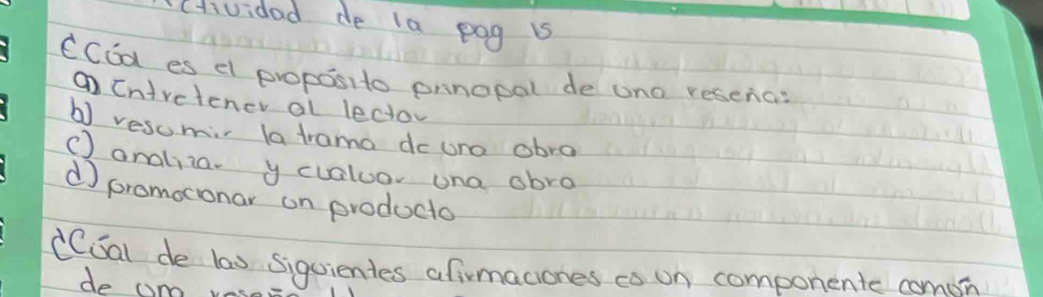 Actividad de la pag 15
¿Cúal es el propósito principal de una reseña:
a) Entretener al lector
b) resumir la trama de una obra
c) analizar y evaluar una obra
d) promocionar un producto
¿Cúal de las siguientes afirmaciones es un componente común
de una reseña